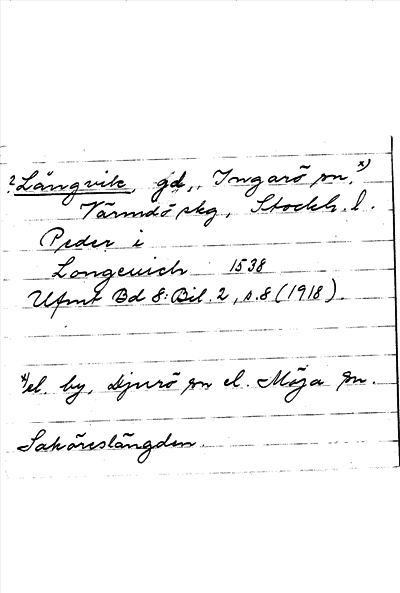 ? Långvik, gd, Ingarö sn. x)
Värmdö skg, Stockh. l.
Peder i
Longewich 1538
Ufmt Bd 8: Bil. 2, s. 8 (1918).
x) el. by, Djurö sn el. Möja sn.
Saköreslängden.